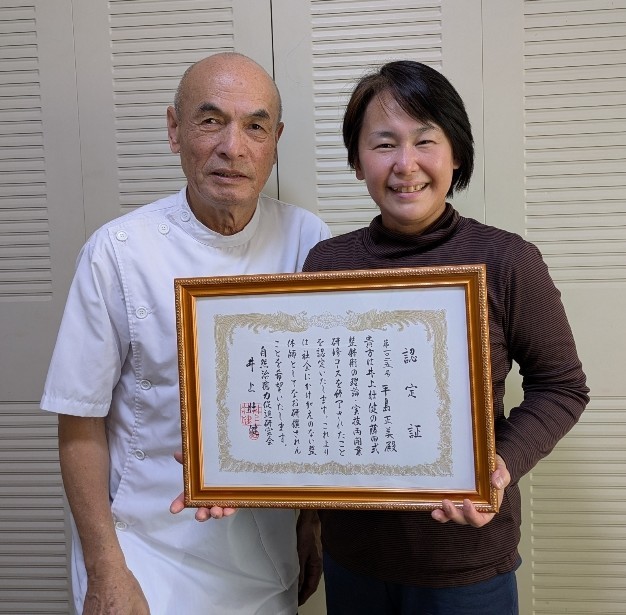 認定証
平島正美殿
貴方は井上仕健の勝田式
整体術の理論 実技両開業
研修コースを修了されたこと
を認定いたします。これより
は社会にかけがえのない整
体師としてなお研鑽されん
ことを希望いたします。
自然治癒力促進研究会
井上 健